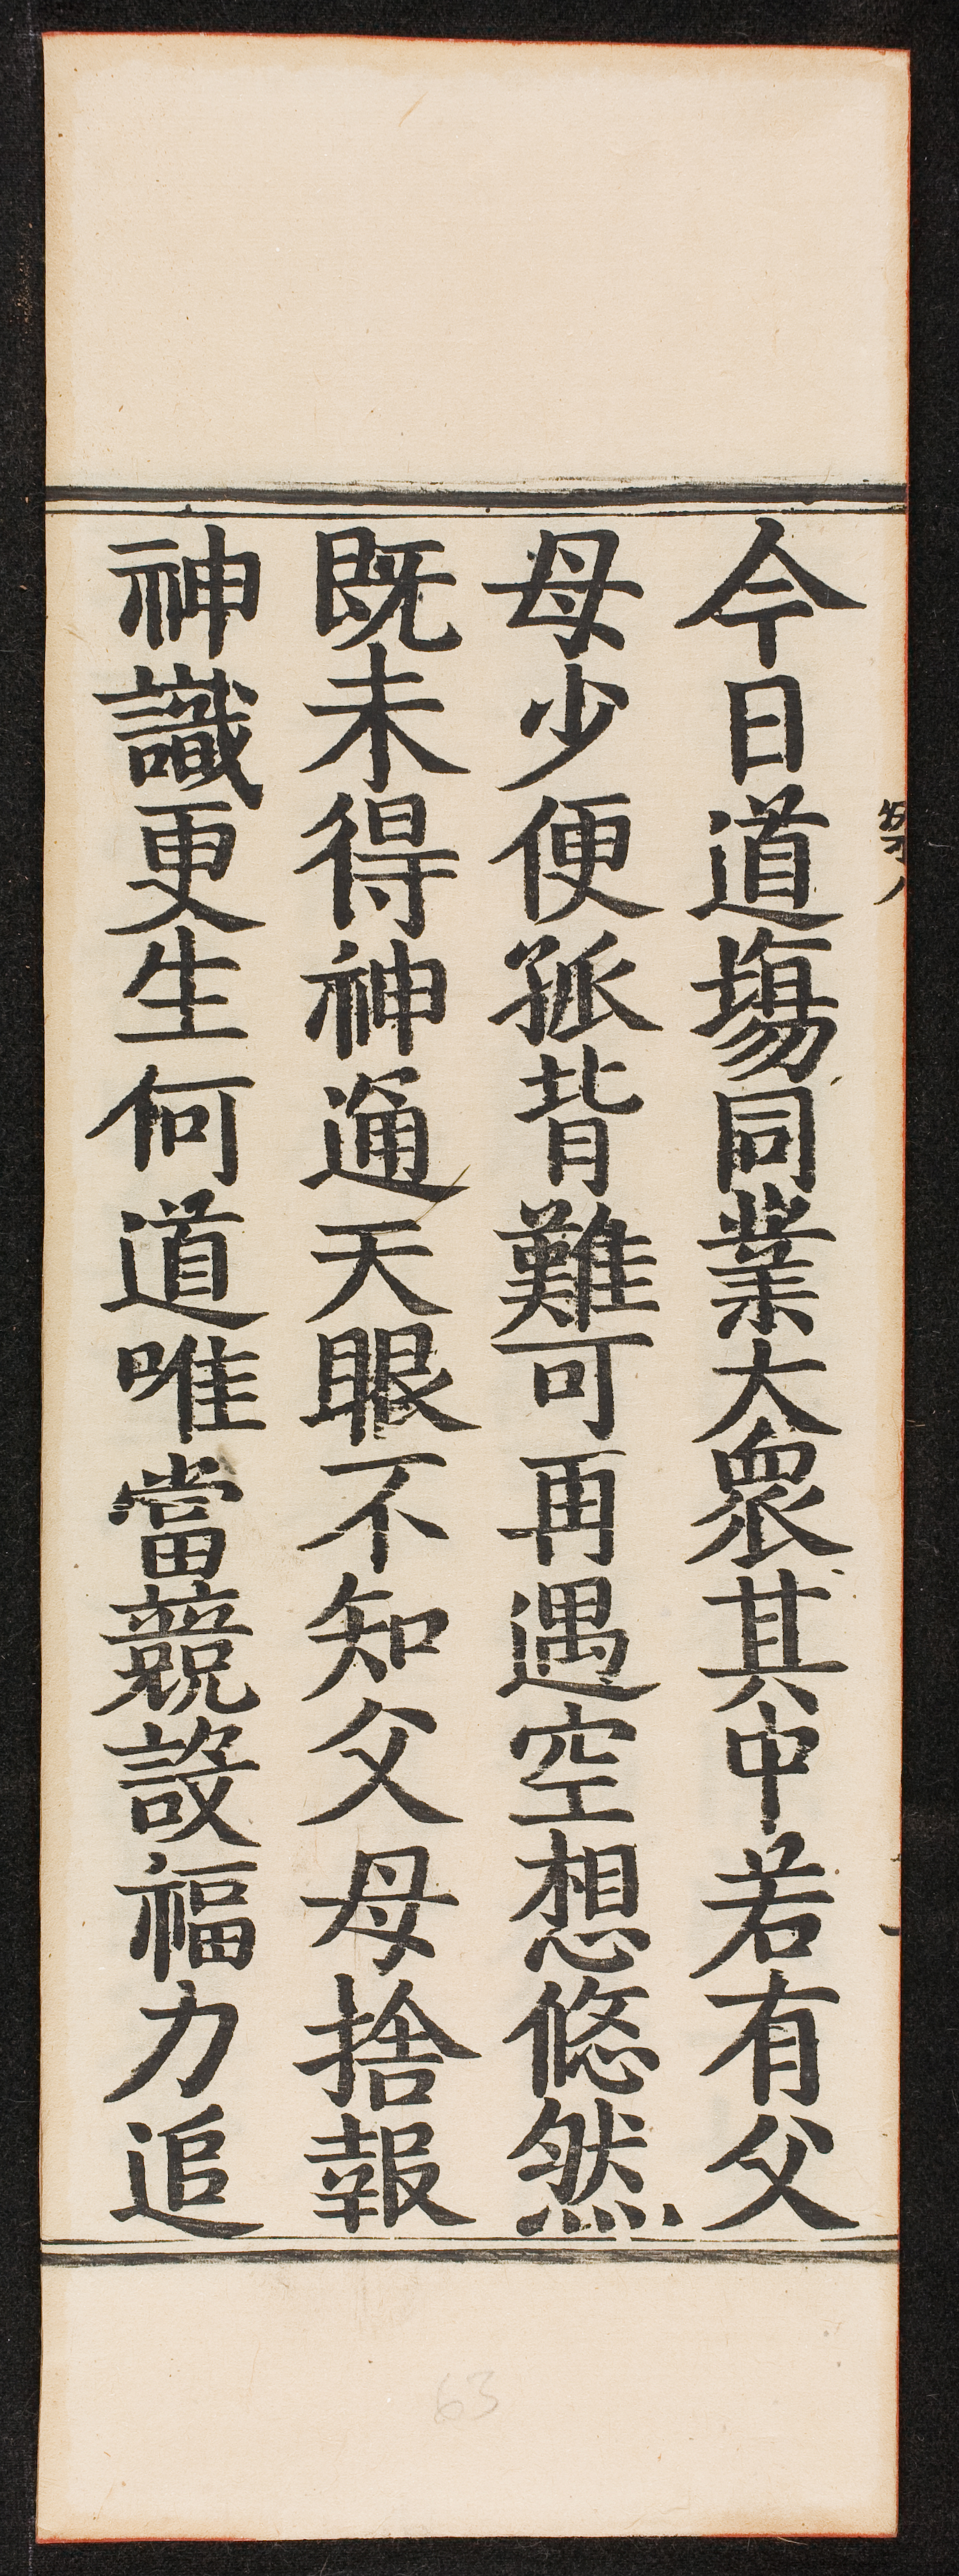 今日道塲同業大衆其中若有父
母少便孤背難可再遇空想悠然
既未得神通天眼不知父母捨報
神識更生何道唯當競設福力追
63